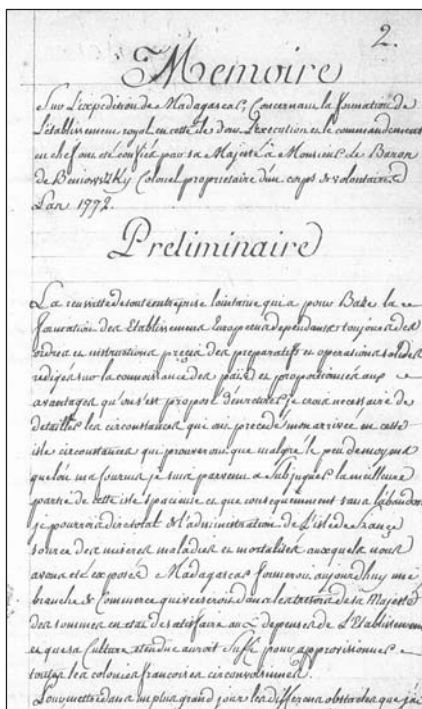 2.
Memoire
Sur L'expedition de Madagascar, Concernant la formation de
L'établissement royal en cette isle dont L'execution et le commandement
en chef ont été confiés par sa Majesté à Monsieur le Baron
de Beniowszky Colonel propriétaire d'un corps de volontaires
L'an 1772.
Preliminaire
La reussitte de toute entreprise lointaine qui a pour Baze la
formation des Etablissements Européens dependant toujours des
ordres et instructions précis des préparatifs et operations solides
redigés sur la connoissance des païs et proportionnés aux
avantages qu'on s'est proposé d'en retirer je crois necessaire de
detailler les circonstances qui ont precedé mon arrivée en cette
isle circonstances qui prouveront que malgré le peu de moyens
que l'on m'a fournis je suis parvenu a subjuguer la meilleure
partie de cette isle spacieuse et que consequemment sans l'abandon
je pourrois dire total de l'administration de L'isle de france
source des miseres maladies et mortalités auxquels nous
avons été exposés Madagascar formeroit aujourd'huy une
branche de Commerce qui verseroit dans les tresors de sa Majesté
des sommes en etat de satisfaire aux depenses de L'Etablissement
et que sa Culture etendue auroit Suffi pour approvisionner
toutes les colonies francoises circonvoisines.
Pour mettre dans un plus grand jour les differens obstacles que j'ai